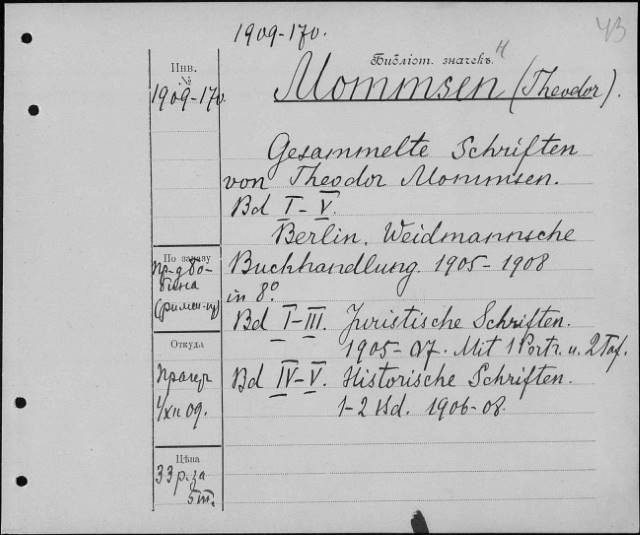 43
1909-170.
Библіот. значекъ
Инв.
№
1909-170.
Mommsen (Theodor).
Gesammelte Schriften
von Theodor Mommsen.
Bd I-V.
Berlin. Weidmannsche
По заказу
Buchhandlung. 1905-1908
in 8°.
Bd I-III. Juristische Schriften.
1905-07. Mit 1 Portr. u. 2 Taf.
Откуда
Прагеръ
1/XII 09.
Bd IV-V. Historische Schriften.
1-2 Bd. 1906-08.
Цѣна
33 р. за
5 т.